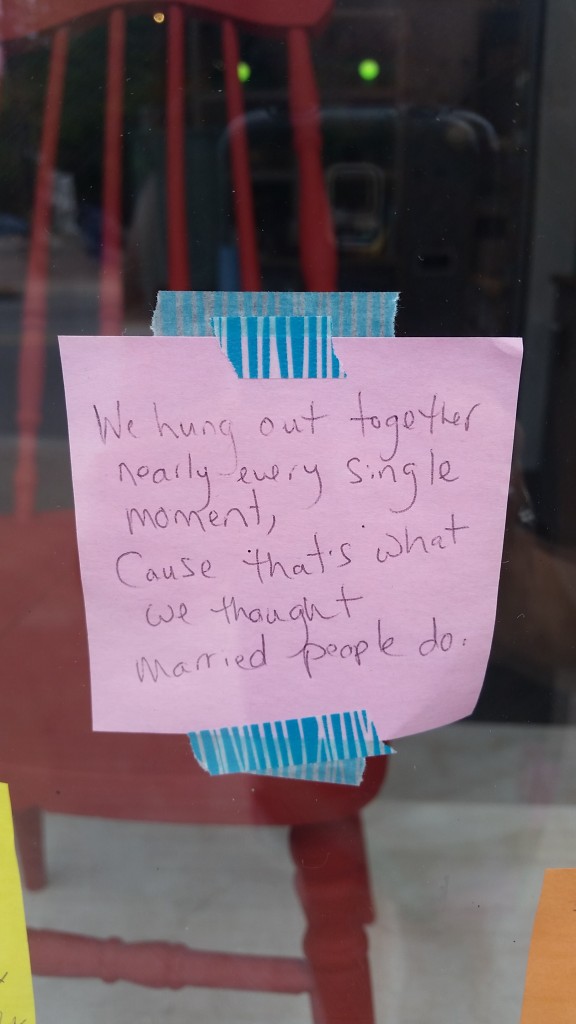 We hung out together
nearly every single
moment,
Cause that's what
we thought
married people do.